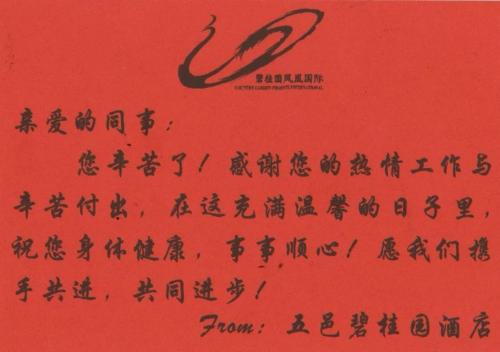 碧桂园凤凰国际
COUNTRY GARDEN PHOENIX INTERNATIONAL
亲爱的同事：
您辛苦了！感谢您的热情工作与
辛苦付出，在这充满温馨的日子里，
祝您身体健康，事事顺心！愿我们携
手共进，共同进步！
From: 五邑碧桂园酒店